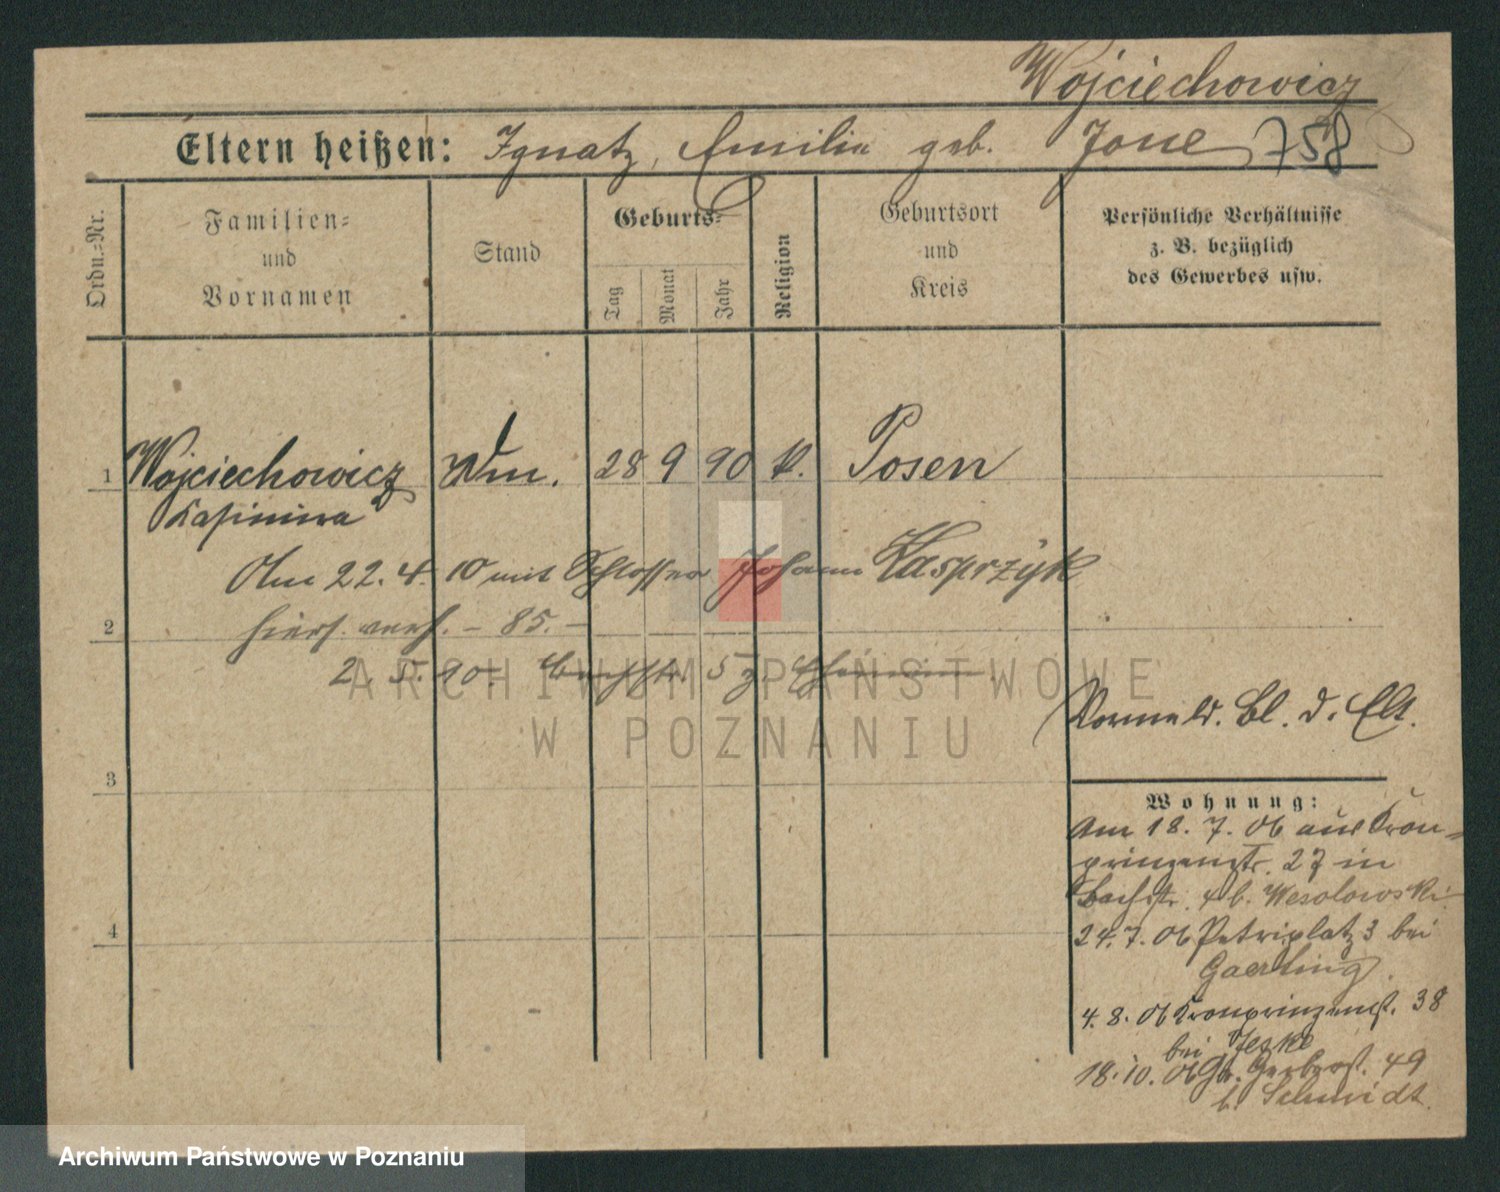 Wojciechowicz
Eltern heißen: Ignatz, Emilia geb. Jone 758
Ordn.=Nr.
Familien=
und
Vornamen
Stand
Geburts=
Tag
Monat
Jahr
Religion
Geburtsort
und
Kreis
Persönliche Verhältnisse
z. B. bezüglich
des Gewerbes usw.
1 Wojciechowicz 28 9 90 k. Posen
Kasimira
Am 22. 4. 10 mit Schlosser Johann Kasprzyk
2 hiers. verh. – 85. –
2. 5. 90. Bachstr. 5
ARCHIWUM PAŃSTWOWE
W POZNANIU
Bl. d. Elt.
3
Wohnung:
Am 18. 7. 06 aus Kron=
prinzenstr. 27 in
Bachstr. 4 b. Wesolowski
4
24. 7. 06 Petriplatz 3 bei
Gaertling.
4. 8. 06 Kronprinzenst. 38
bei Jeske
18. 10. 06 Gr. Gerberst. 49
b. Schmidt.
Archiwum Państwowe w Poznaniu